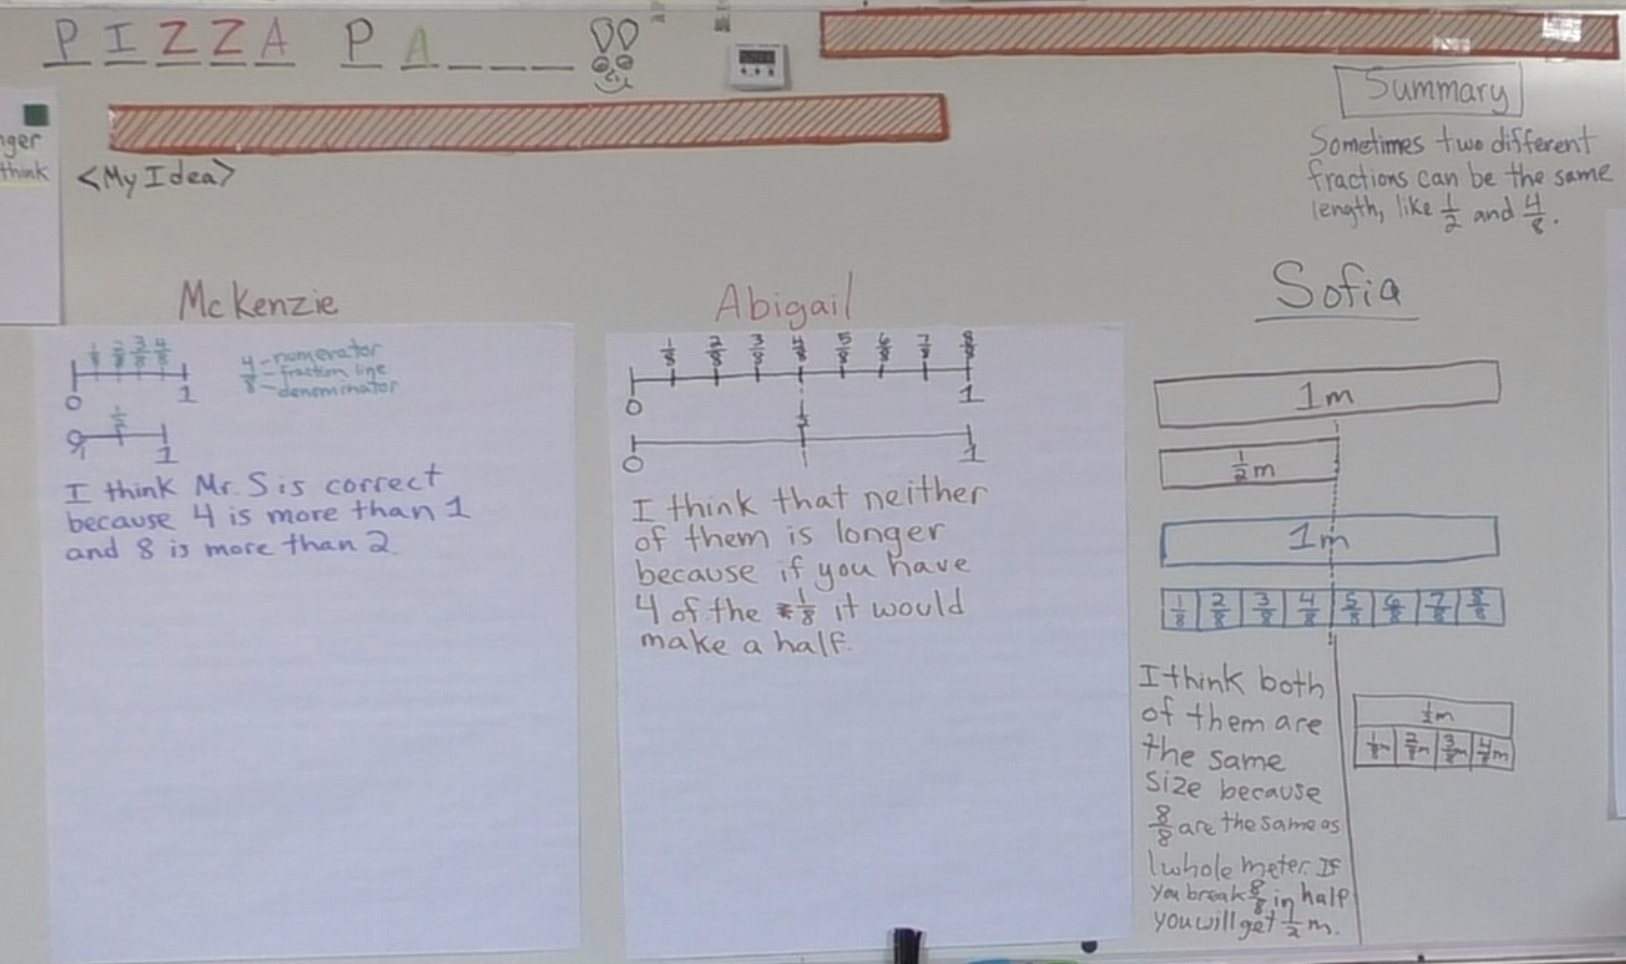 PIZZA PA
Summary
Sometimes two different
fractions can be the same
length, like 1/2 and 4/8.
nger
think
<My Idea>
McKenzie
1/8 2/8 3/8 4/8
0 1
4 - numerator
- fraction line
8 - denominator
1/2
0 1
I think Mr. S is correct
because 4 is more than 1
and 8 is more than 2.
Abigail
1/8 2/8 3/8 4/8 5/8 6/8 7/8 8/8
0 1
1/2
0 1
I think that neither
of them is longer
because if you have
4 of the 1/8 it would
make a half.
Sofia
1m
1/2 m
1m
1/8 2/8 3/8 4/8 5/8 6/8 7/8 8/8
I think both
of them are
the same
size because
8/8 are the same as
1 whole meter. If
you break 8/8 in half
you will get 1/2 m.
1/2 m
1/8 m 2/8 m 3/8 m 4/8 m